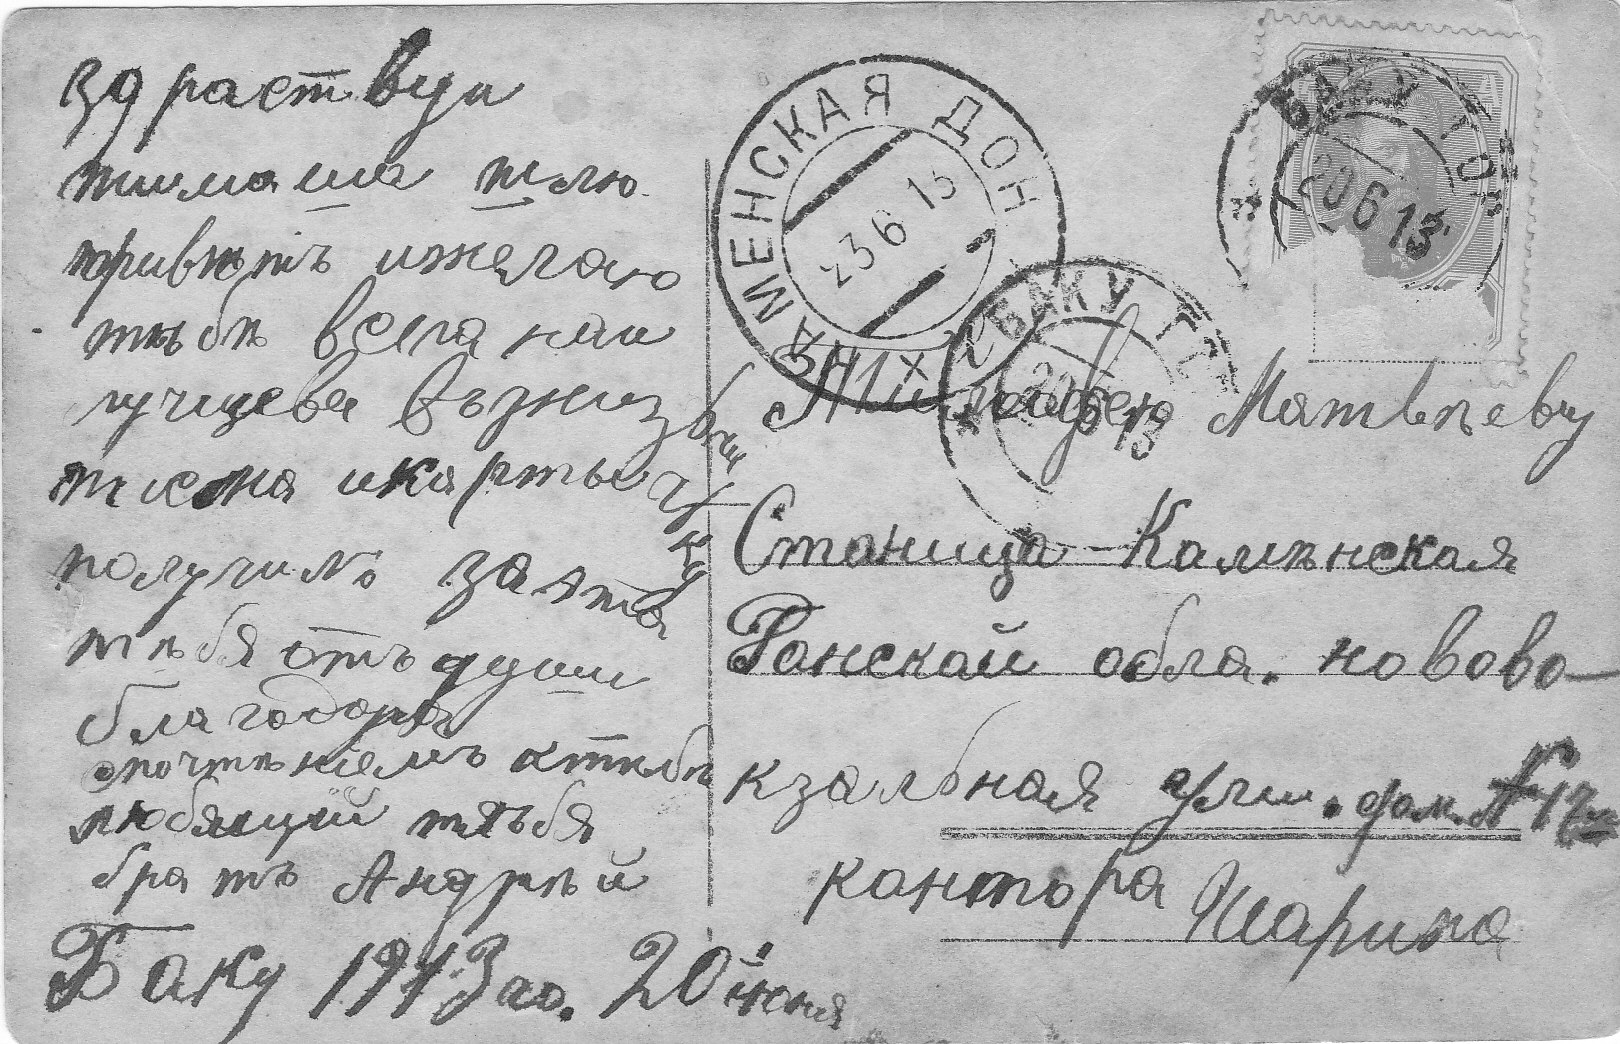 здраствуи
тимоша шлю
привѣтъ ижелаю
тѣбѣ всега наи
лучшева въжиз
писма икарты
получилъ за эта
тѣбя отъ души
благодара
спочтѣниемъ ктѣбѣ
любящий тѣбя
братъ Андрѣй
Баку 1913 го. 20 июня
КАМЕНСКАЯ ДОН
23 6 13
БАКУ ГОР
20 6 13
БАКУ Г
20 6 13
Тимофею Матвѣеву
Станица Камѣнская
Донской обла. новово-
кзальная ули. дом. № 17-й
кантора Шарипа